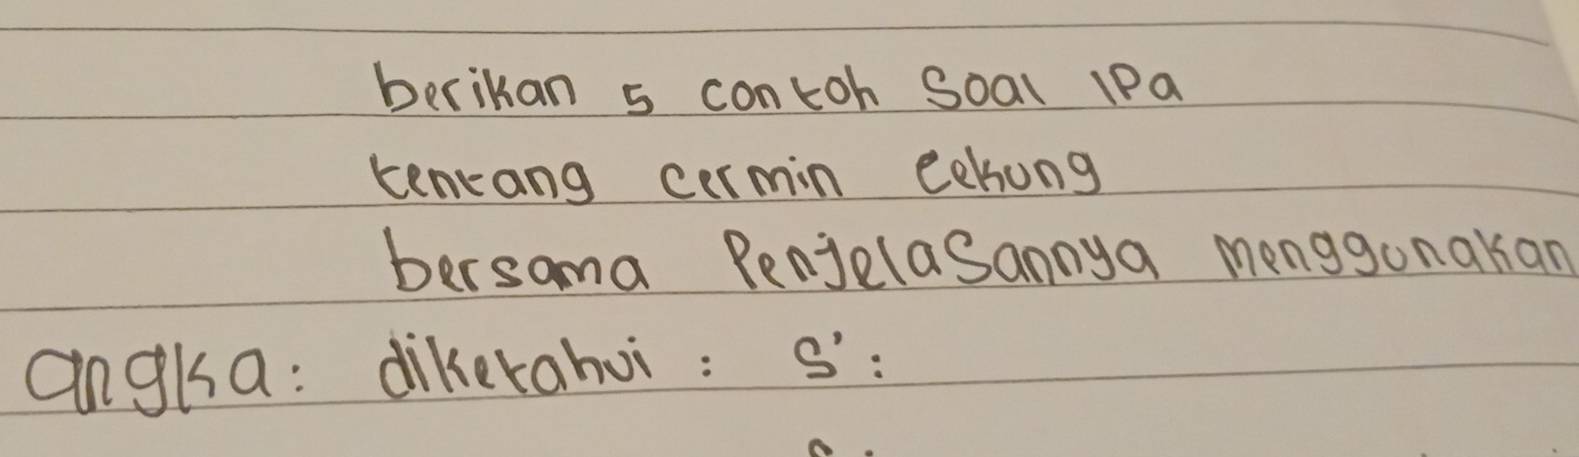 berikan 5 contoh Soal IPa
tentang cermin cekung
bersama Penjelasannya menggunakan
angka: diketahui : S':